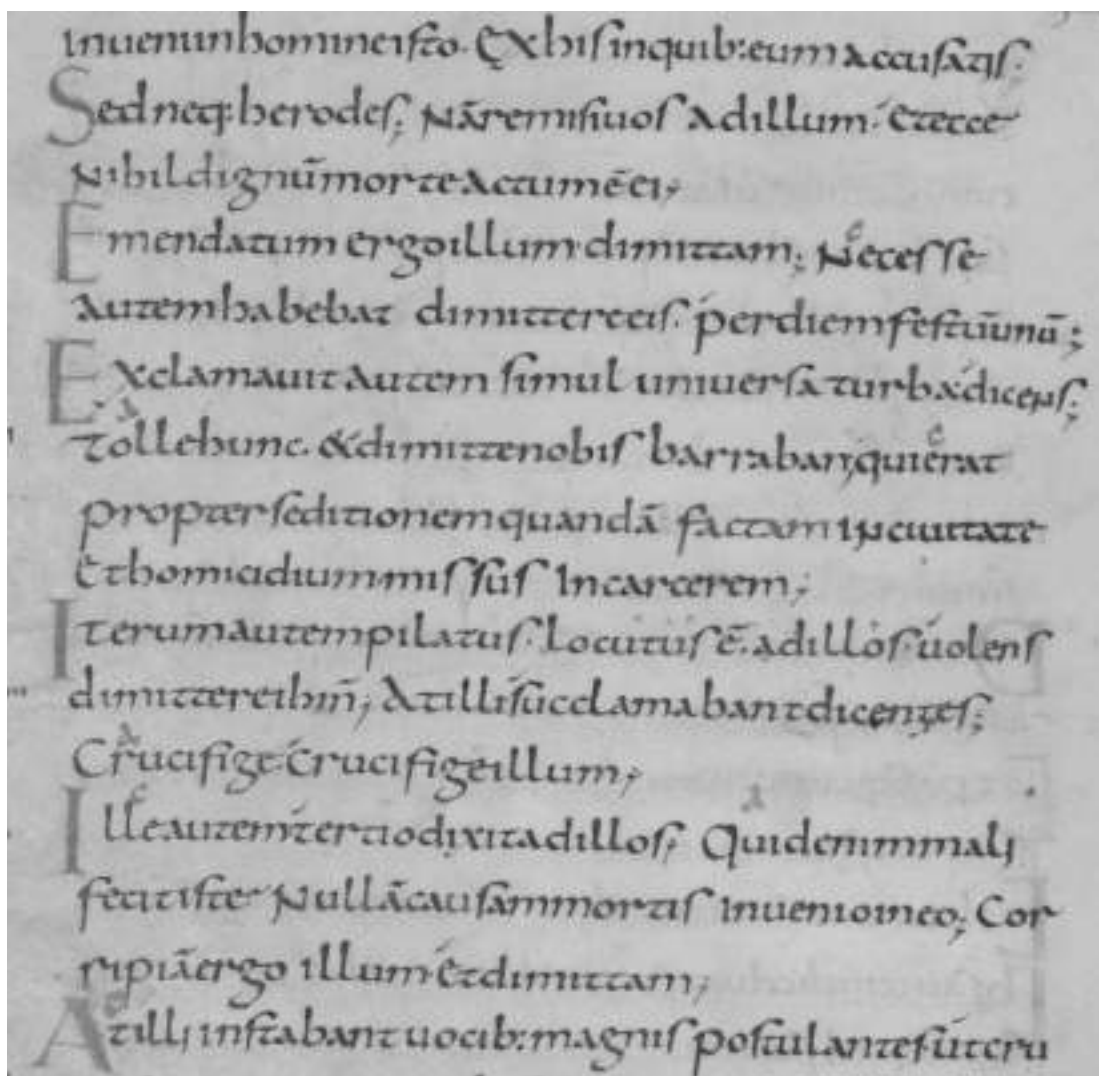 inueni in homine isto. Ex his in quib: eum accusatis;
Sed neq: herodes; Nā remisi uos ad illum. et ecce
nihil dignū morte actum ē ei;
Emendatum ergo illum dimittam; Necesse
autem habebat dimittere eis. per diem festū unū;
Exclamauit autem simul uniuersa turba dicens;
Tolle hunc. & dimitte nobis barraban; qui erat
propter seditionem quandā factam in ciuitate
et homicidium missus in carcerem;
Iterum autem pilatus. locutus ē. ad illos. uolens
dimittere ihm̄; At illi succlamabant dicentes;
Crucifige. Crucifige illum;
Ille autem tertio dixit ad illos; Quid enim mali
fecit iste Nullā causam mortis inuenio in eo; Cor
ripiā ergo illum et dimittam;
At illi instabant uocib: magnis postulantes ut cru